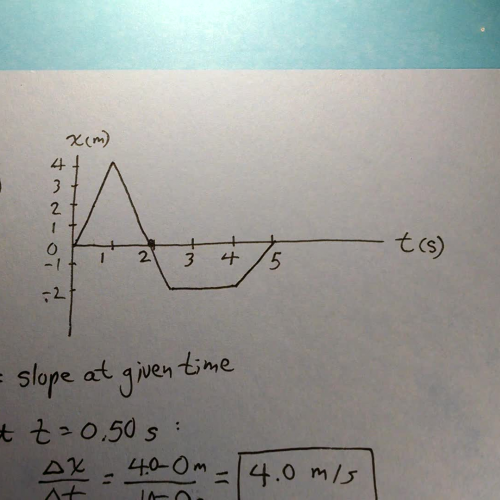 x(m)
4
3
2
1
0
-1
-2
1 2 3 4 5 t(s)
= slope at given time
t = 0.50 s :
Δx = 4.0-0 m = 4.0 m/s
Δt